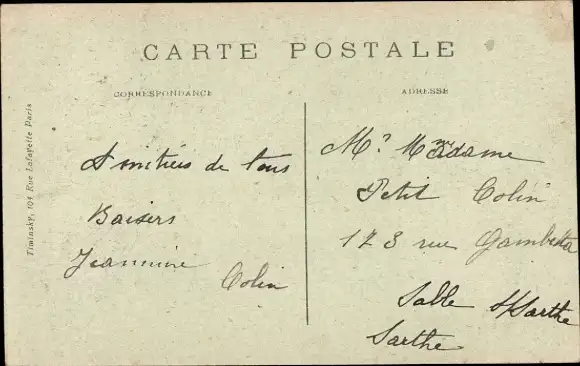 CARTE POSTALE
CORRESPONDANCE
ADRESSE
Timinsky, 104 Rue Lafayette Paris
Amitiés de tous
Baisers
Jeannine
Colin
Mr Madame
Petit Colin
173 rue Gambetta
Sablé s/Sarthe
Sarthe